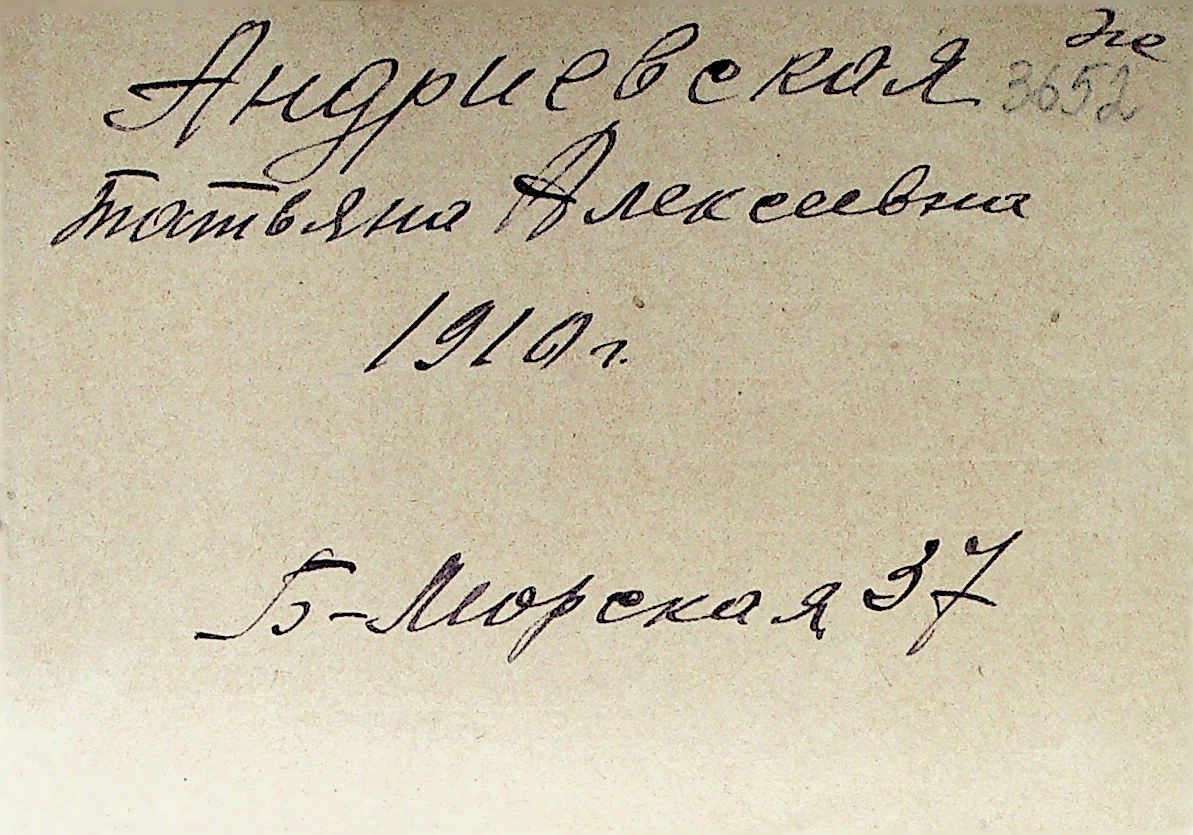 Андриевская
3652
Татьяна Алексеевна
1910 г.
Б-Морская, 37